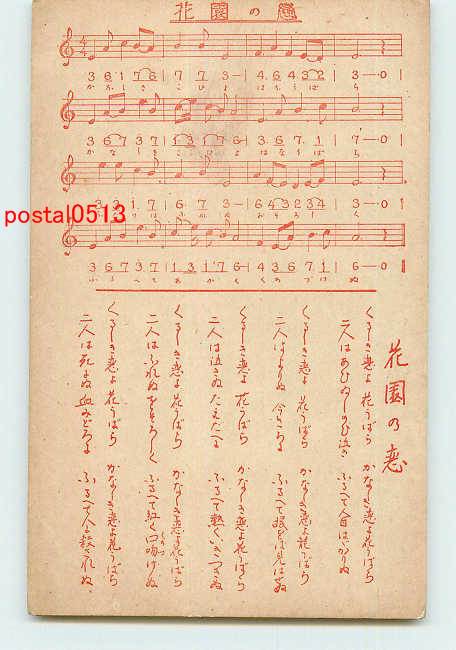 花園の戀
3 6 1 7 6 | 7 7 3— | 4. 6 4 3 2 | 3—0 |
かなしきこひよはなうばら
3 6 7 3 7 | 1 3 1 7 6 | 3. 6 7. 1 | 7—0 |
かなしきこひよはなうばら
3 3 1 7 1 | 6 7 3— | 6 4 3 2 3 4 | 3—0 |
postal0513
3 6 7 3 7 | 1 3 1 7 6 | 4 3 6 7 1 | 6—0
花園の恋
くるしき恋よ花うばら かなしき恋よ花うばら
二人はあひぬしのび泣き ふるへて
くるしき恋よ花うばら かなしき恋よ花うばら
二人は ふるへて眼をば見はぬ
くるしき恋よ花うばら かなしき恋よ花うばら
二人は泣きぬたえだえに ふるへて熱くいきつきぬ
くるしき恋よ花うばら かなしき恋よ花うばら
二人はふれぬ ふるへて紅く口吻けぬ
くるしき恋よ花うばら かなしき恋よ花うばら
二人は死にぬ血みどろに ふるへて人に殺されぬ